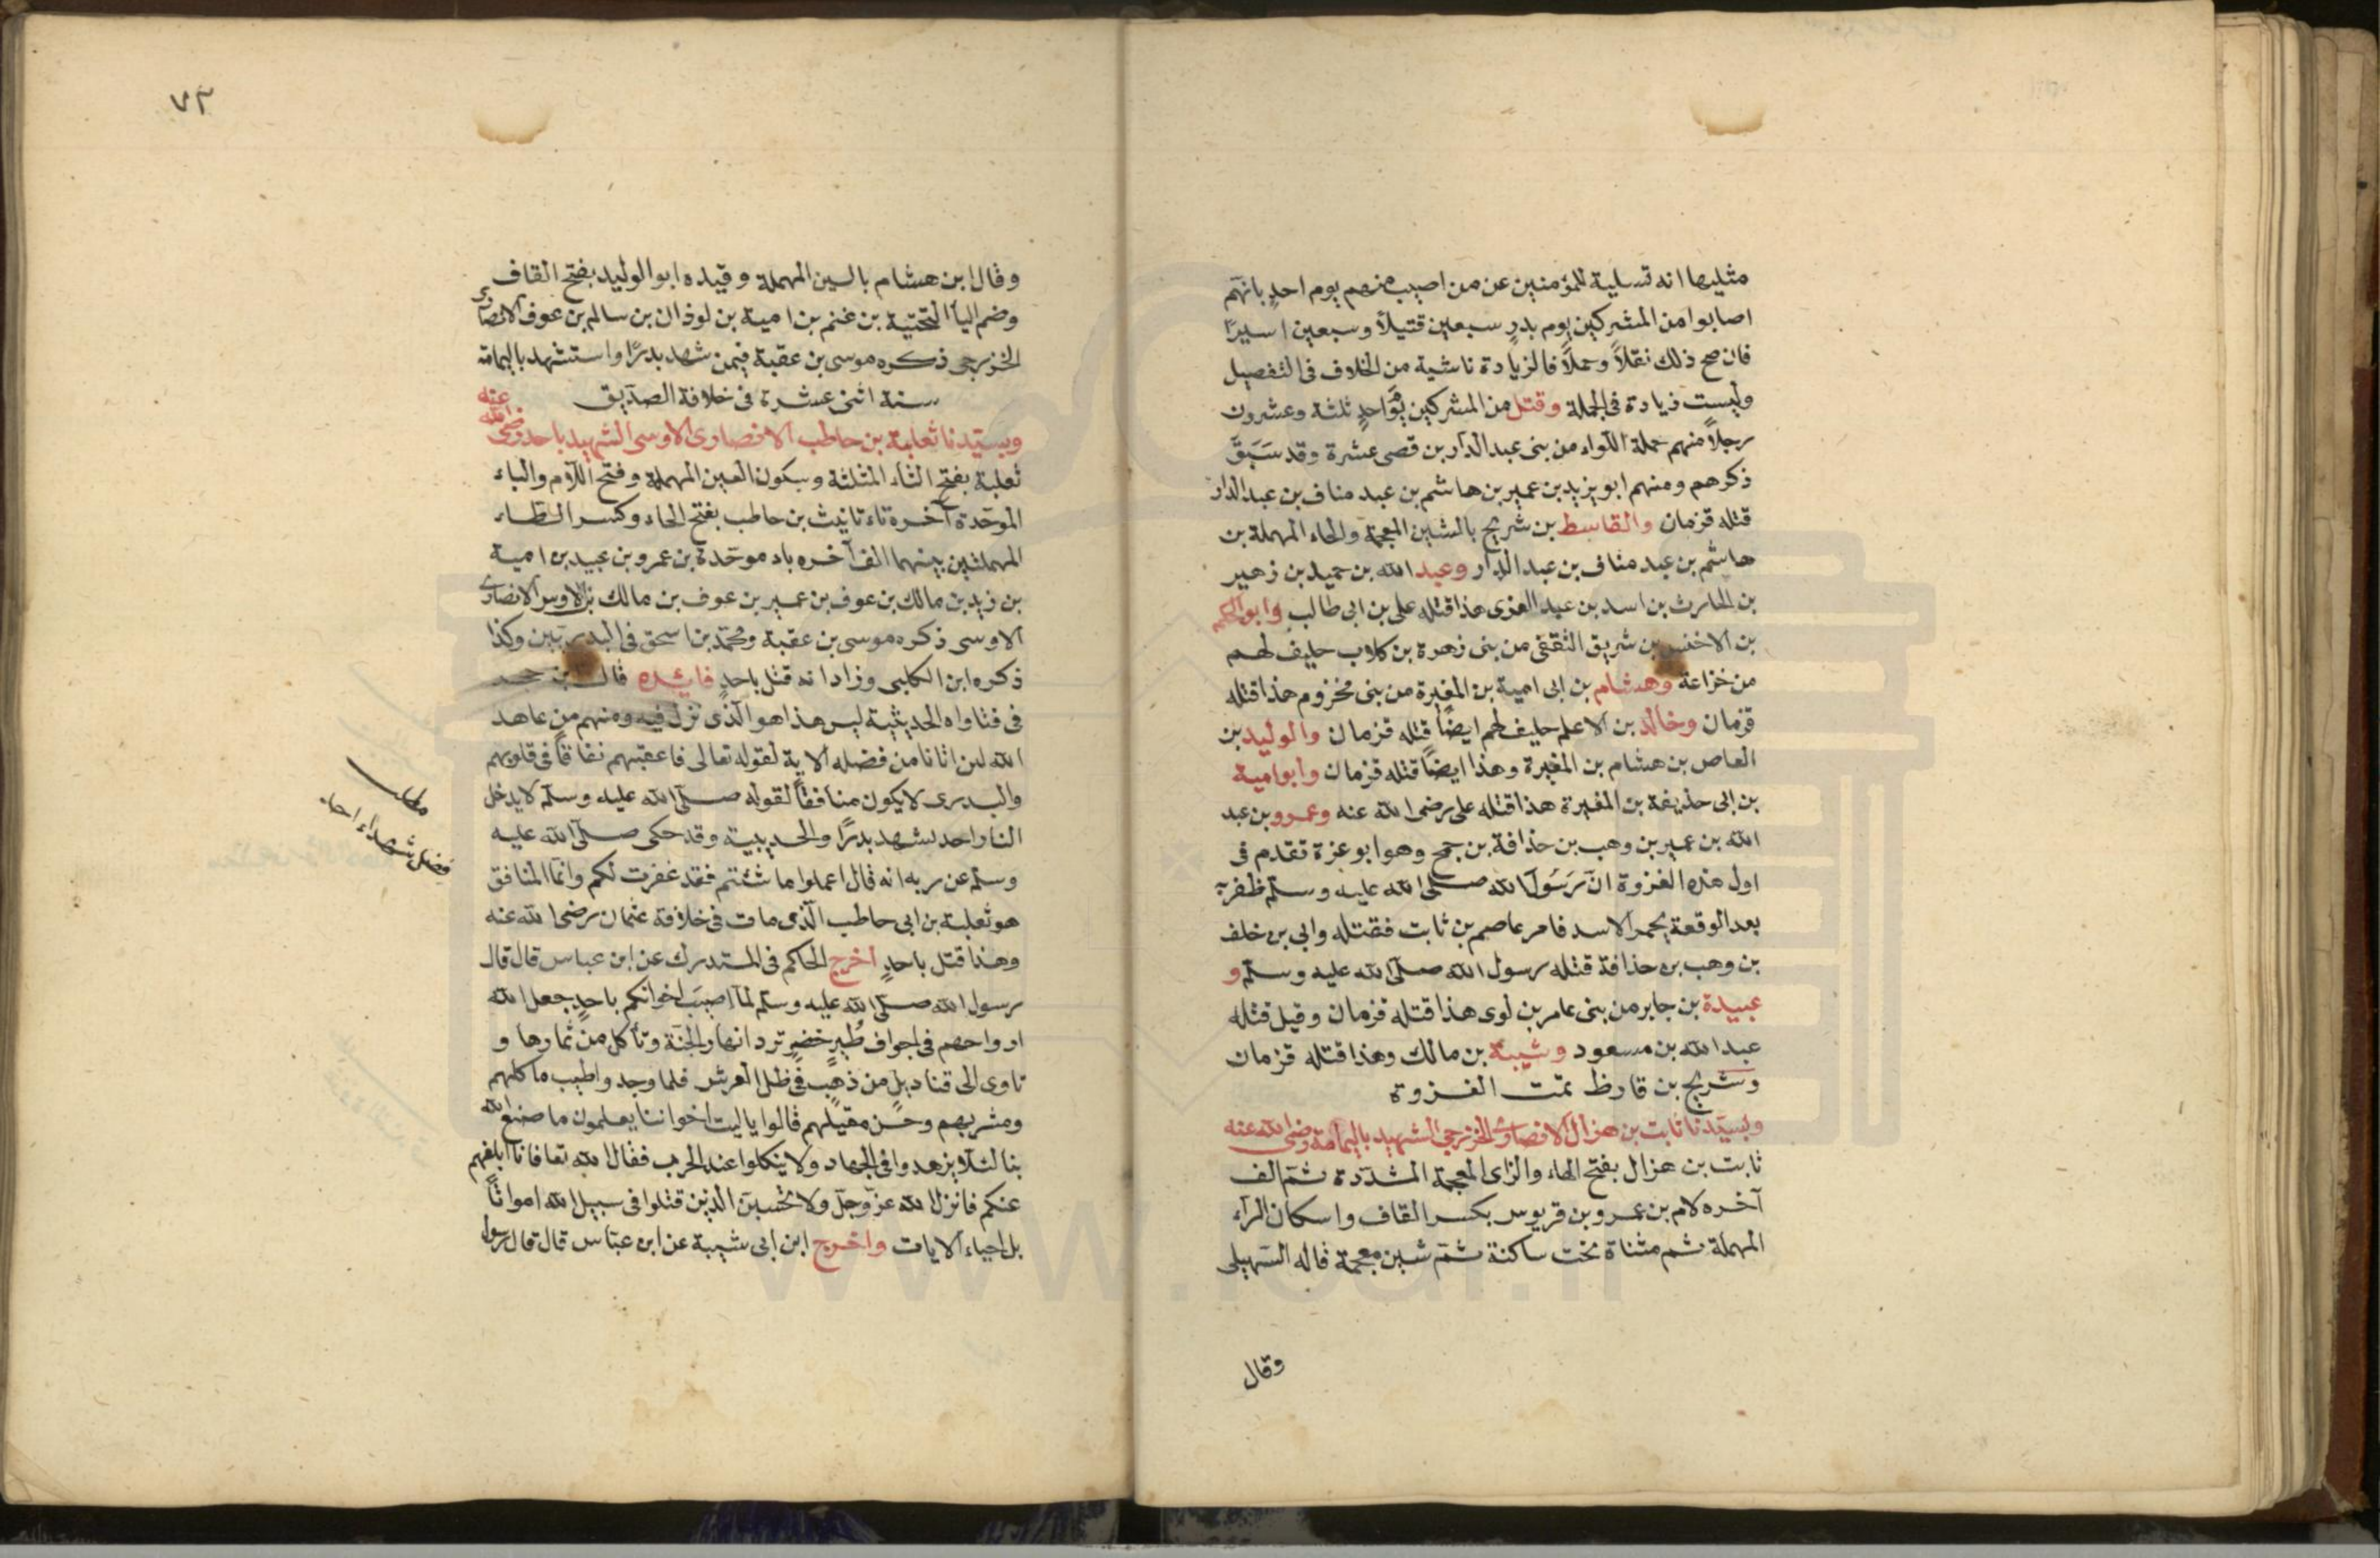 مثليها انه تسلية للمؤمنين عن من اصيب منهم يوم احدٍ بانهم
اصابوا من المشركين يوم بدرٍ سبعين قتيلاً وسبعين اسيرًا
فان صح ذلك نقلاً وحملاً فالزيادة ناشية من الخلاف في التفصيل
وليست زيادة في الجملة وقتل من المشركين يوم احدٍ ثلثة وعشرون
رجلاً منهم حملة اللواء من بني عبد الدار بن قصى عشرة وقد سَبَقَ
ذكرهم ومنهم ابو يزيد بن عمير بن هاشم بن عبد مناف بن عبد الدار
قتله قزمان والقاسط بن شريح بالشين المعجمة والحاء المهملة بن
هاشم بن عبد مناف بن عبد الدار وعبد الله بن حميد بن زهير
بن الحارث بن اسد بن عبد العزى هذا قتله على بن ابى طالب وابو الحكم
بن الاخنس بن شريق الثقفى من بنى زهرة بن كلاب حليف لهم
من خزاعة وهشام بن ابى امية بن المغيرة من بنى مخزوم هذا قتله
قزمان وخالد بن الاعلم حليف لهم ايضًا قتله قزمان والوليد بن
العاص بن هشام بن المغيرة وهذا ايضًا قتله قزمان وابو امية
بن ابى حذيفة بن المغيرة هذا قتله على رضى الله عنه وعمرو بن عبد
الله بن عمير بن وهب بن حذافة بن جمح وهو ابو عزة تقدم فى
اول هذه الغزوة انّ رَسُولَ الله صلى الله عليه وسلم ظفر به
بعد الوقعة بحمر الاسد فامر عاصم بن ثابت فقتله وابى بن خلف
بن وهب بن حذافة قتله رسول الله صلى الله عليه وسلم و
عبيدة بن جابر من بنى عامر بن لوى هذا قتله قزمان وقيل قتله
عبد الله بن مسعود وشيبة بن مالك وهذا قتله قزمان
وشريح بن قارظ تمّت الغزوة
وبسيّدنا ثابت بن هزال الانصارى الخزرجى الشهيد باليمامة رضى الله عنه
ثابت بن هزال بفتح الهاء والزاى المعجمة المشدّدة ثمّ الف
آخره لام بن عمرو بن قريوس بكسر القاف واسكان الرّاء
المهملة ثم مثناة تحت ساكنة ثمّ شين معجمة قاله السّهيلى
وقال
٧٣
وقال ابن هشام بالسين المهملة وقيده ابو الوليد بفتح القاف
وضم اليا التحتيّة بن غنم بن امية بن لوذان بن سالم بن عوف الانصارى
الخزرجى ذكره موسى بن عقبة فيمن شهد بدرًا واستشهد باليمامة
سنة اثنى عشرة فى خلافة الصدّيق
وبسيّدنا ثعلبة بن حاطب الانصارى الاوسى الشهيد باحد رضى الله عنه
ثعلبة بفتح الثاء المثلثة وسكون العين المهملة وفتح اللام والباء
الموحّدة آخره تاء تانيث بن حاطب بفتح الحاء وكسر الطاء
المهملتين بينهما الف آخره باء موحّدة بن عمرو بن عبيد بن امية
بن زيد بن مالك بن عوف بن عمير بن عوف بن مالك بن الاوس الانصارى
الاوسى ذكره موسى بن عقبة ومحمّد بن اسحق فى البدريين وكذا
ذكره ابن الكلبى وزاد انه قتل باحدٍ فائده قال بن حجر
فى فتاواه الحديثية ليس هذا هو الّذى نزل فيه ومنهم من عاهد
الله لئن اتانا من فضله الاية لقوله تعالى فاعقبهم نفاقاً فى قلوبهم
والبدرى لا يكون منافقاً لقوله صلّى الله عليه وسلّم لا يدخل
النار احد شهد بدرًا والحديبية وقد حكى صلّى الله عليه
وسلّم عن ربه انه قال اعملوا ما شئتم فقد غفرت لكم وانّما المنافق
هو ثعلبة بن ابى حاطب الّذى مات فى خلافة عثمان رضى الله عنه
وهذا قتل باحدٍ اخرج الحاكم فى المستدرك عن ابن عباس قال قال
رسول الله صلّى الله عليه وسلّم لمّا اصيبَ اخوانكم باحدٍ جعل الله
ارواحهم فى اجواف طُيرٍ خضرٍ ترد انهار الجنّة وتأكل من ثمارها و
تاوى الى قناديل من ذهبٍ فى ظل العرش فلما وجدوا طيب ماكلهم
ومشربهم وحسن مقيلهم قالوا ياليت اخواننا يعلمون ما صنع الله
بنا لئلا يزهدوا فى الجهاد ولا ينكلوا عند الحرب فقال الله تعا فانا ابلغهم
عنكم فانزل الله عزّ وجلّ ولا تحسبنّ الذين قتلوا فى سبيل الله امواتاً
بل احياء الايات واخرج ابن ابى شيبة عن ابن عبّاس قال قال رسول
مطلب
فضل شهداء احد